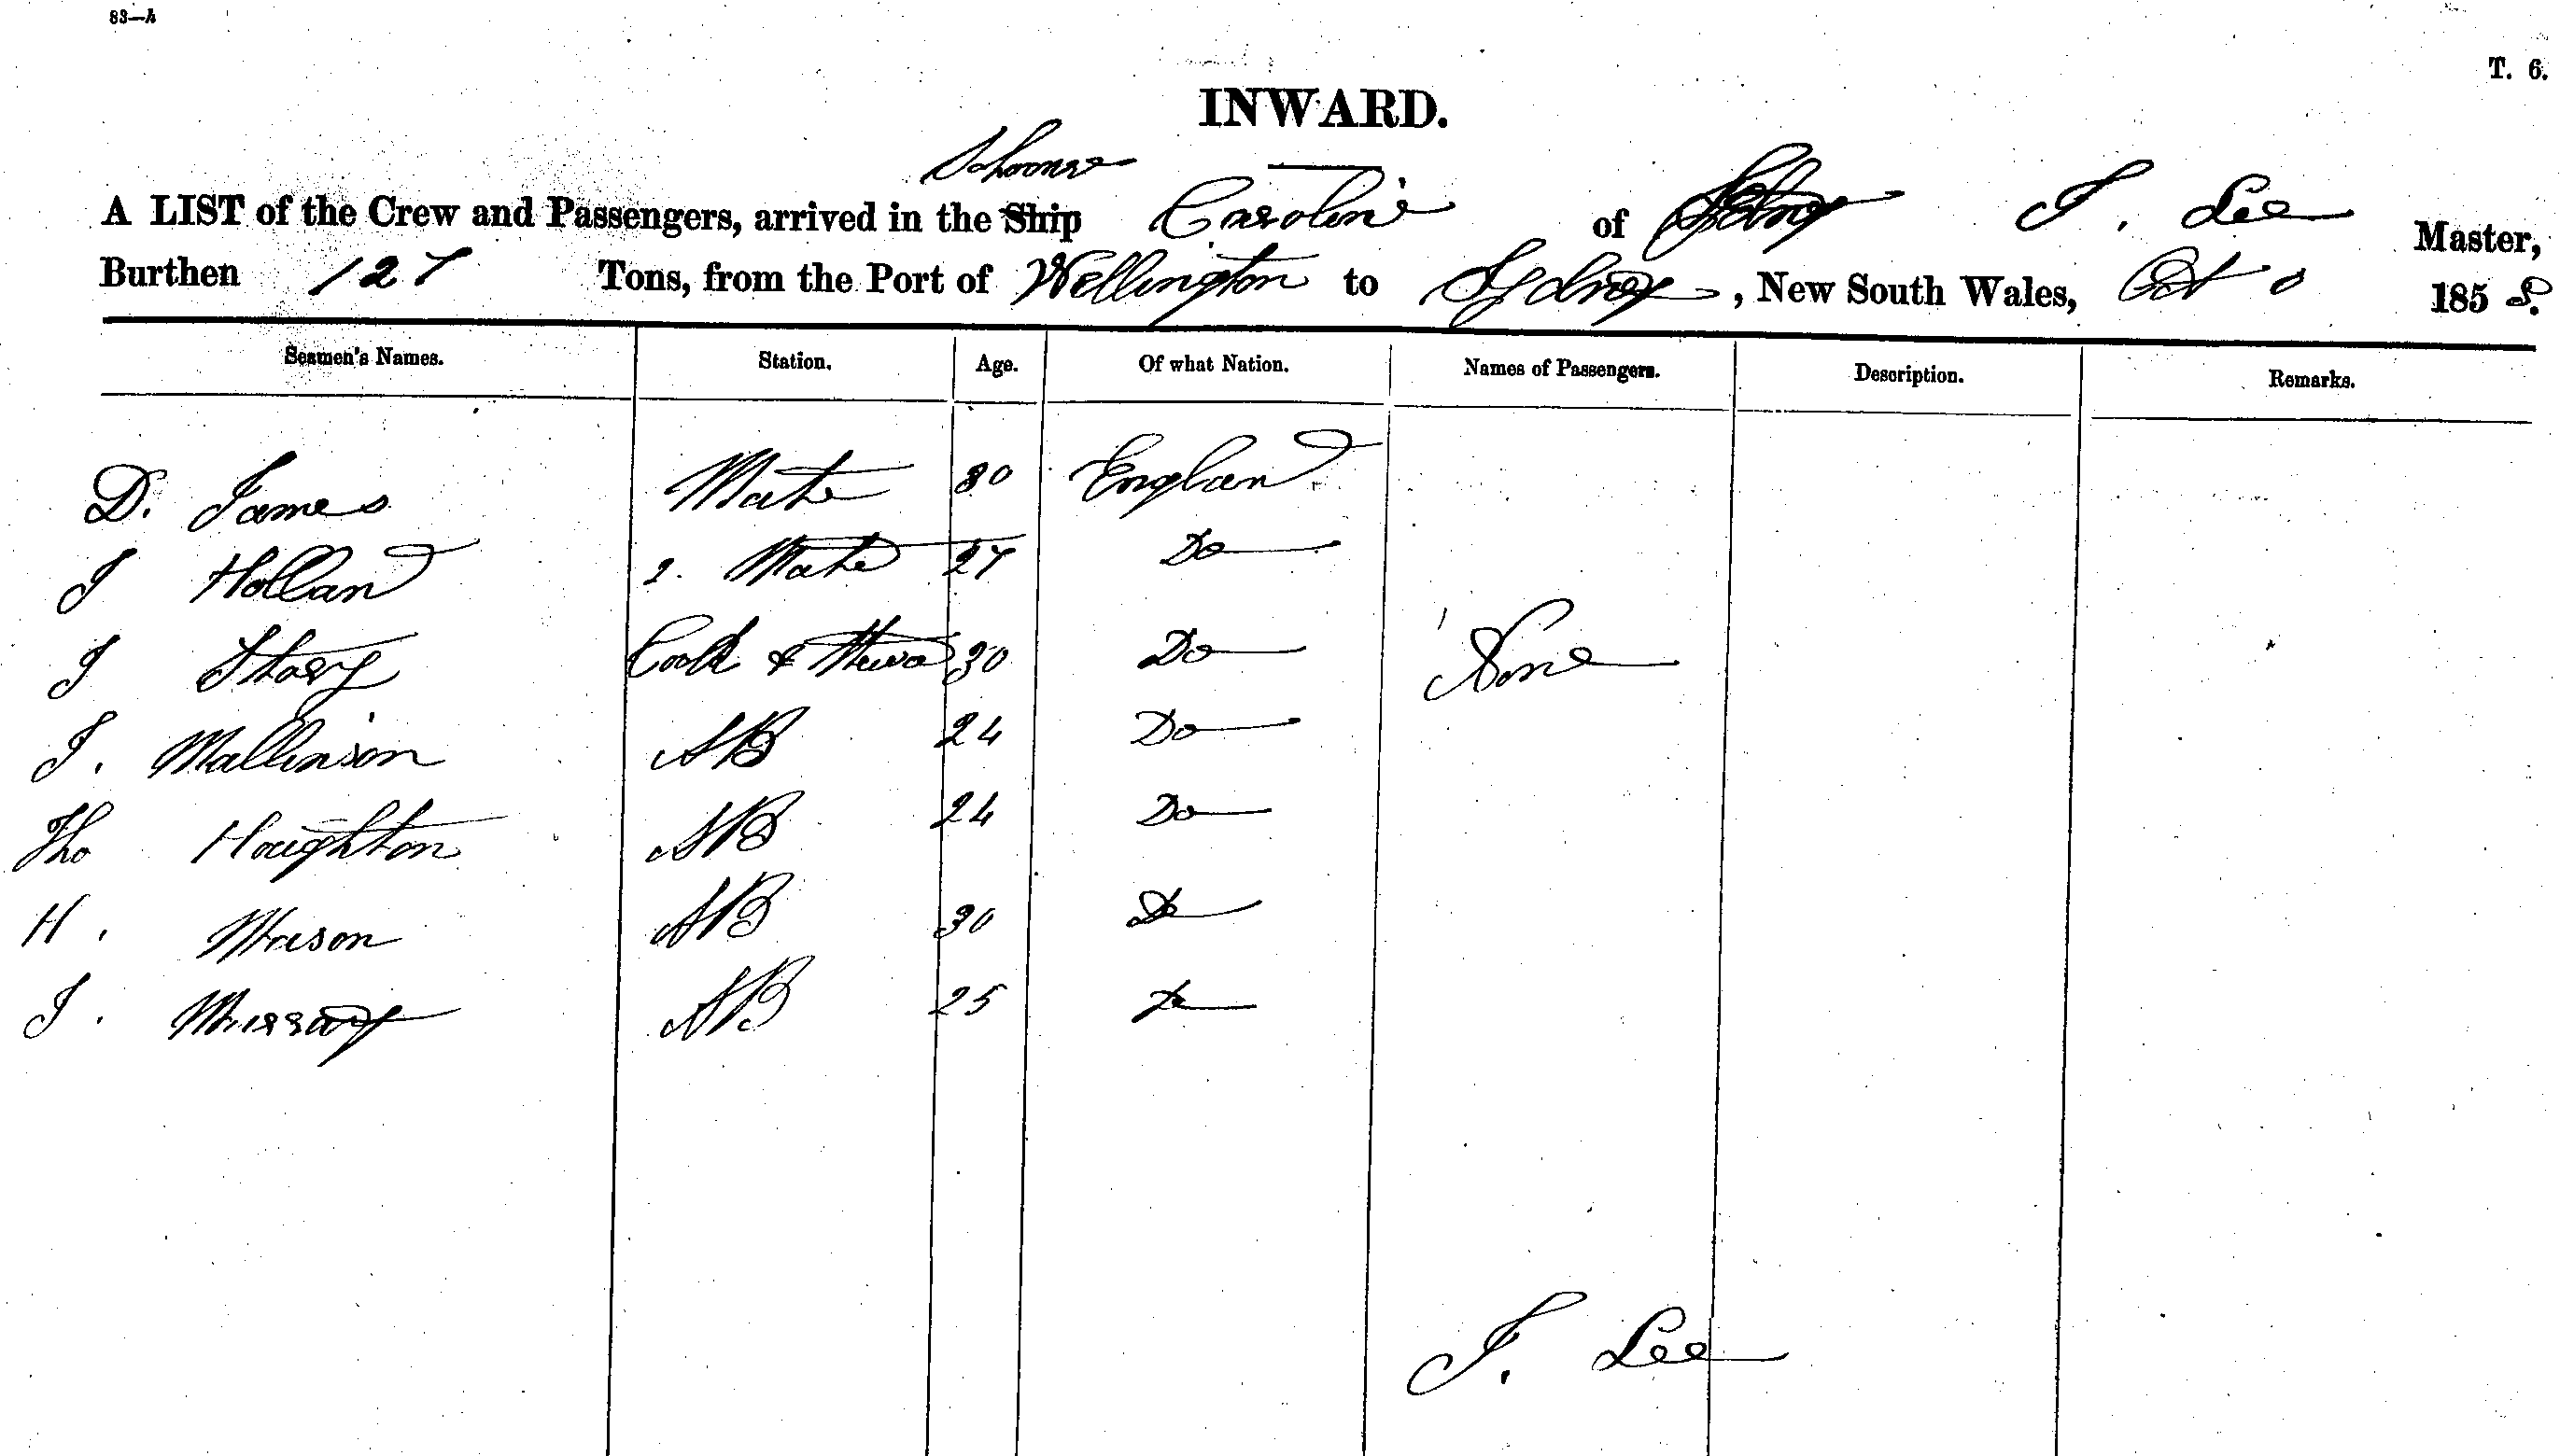 83—A
T. 6.
INWARD.
Schooner
A LIST of the Crew and Passengers, arrived in the Ship Caroline of Sydney J. Lee Master,
Burthen 127 Tons, from the Port of Wellington to Sydney, New South Wales, Oct 1858.
Seamen's Names. Station. Age. Of what Nation. Names of Passengers. Description. Remarks.
D. James Mate 30 England
J Holland 2. Mate 27 Do
J Story Cook & Stewd 30 Do None
J. Mallinson AB 24 Do
Tho Houghton AB 24 Do
H. Mason AB 30 Do
J. Murray AB 25 Do
J. Lee